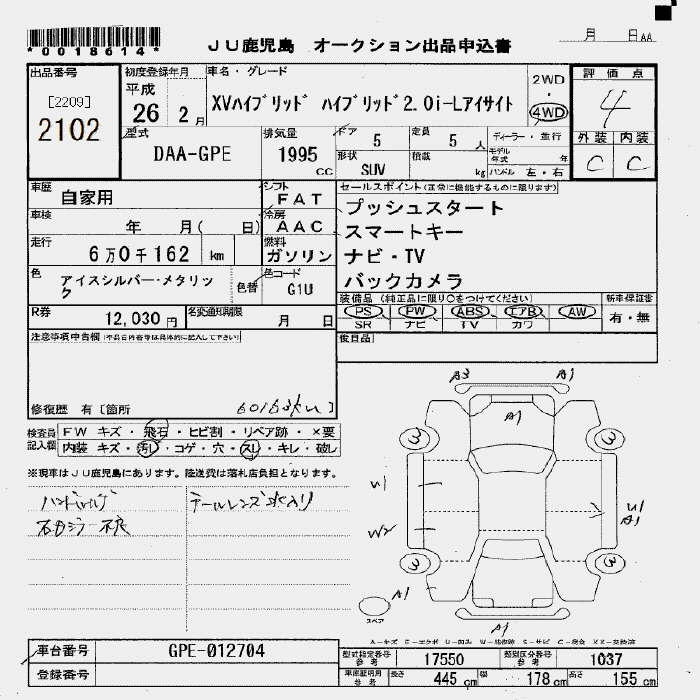 *0018614*
JU鹿児島 オークション出品申込書
月 日 AA
出品番号
[2209]
2102
初度登録年月
平成
26 2月
車名・グレード
XVハイブリッド ハイブリッド2.0i-Lアイサイト
2WD
・
4WD
評価点
4
外装 内装
C C
型式
DAA-GPE
排気量
1995 cc
ドア
5
定員
5 人
形状
SUV
積載
kg
ディーラー・並行
モデル年式 年
ハンドル 左・右
車歴
自家用
シフト
FAT
車検
年 月( 日)
冷房
AAC
走行
6万0千162 km
燃料
ガソリン
色
アイスシルバー・メタリック
色替
色コード
G1U
セールスポイント(正常に機能するものに限ります)
プッシュスタート
スマートキー
ナビ・TV
バックカメラ
装備品(純正品に限り○をつけてください)
PS PW ABS エアB AW
SR ナビ TV カワ
新車保証書
有・無
R券
12,030円
名変通知期限
月 日
注意事項申告欄
後日品
修復歴 有〔箇所
60163km]
検査員記入欄
FW キズ・飛石・ヒビ割・リペア跡・×要
内装 キズ・汚レ・コゲ・穴・スレ・キレ・破レ
※現車はJU鹿児島にあります。陸送費は落札店負担となります。
テールレンズ水入り
A3 A1
A1
3 3
U1
W2
U1
A1
3 3
A1
スペア
A1
車台番号
GPE-012704
登録番号
型式指定番号 参考
17550
類別区分番号 参考
1037
車庫証明用 参考
長さ 445 cm 幅 178 cm 高さ 155 cm